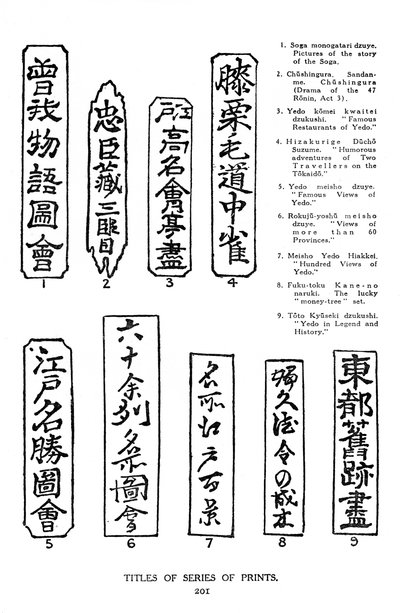 曾我物語圖會
1
忠臣藏三段目
2
江戸高名會亭盡
3
膝栗毛道中雀
4
1. Soga monogatari dzuye.
Pictures of the story
of the Soga.
2. Chūshingura. Sandan-
me. Chūshingura
(Drama of the 47
Rōnin, Act 3).
3. Yedo kōmei kwaitei
dzukushi. "Famous
Restaurants of Yedo."
4. Hizakurige Dūchō
Suzume. "Humorous
adventures of Two
Travellers on the
Tōkaidō."
5. Yedo meisho dzuye.
"Famous Views of
Yedo."
6. Rokujū-yoshū meisho
dzuye. "Views of
more than 60
Provinces."
7. Meisho Yedo Hiakkei.
"Hundred Views of
Yedo."
8. Fuku-toku Kane-no
naruki. The lucky
"money-tree" set.
9. Tōto Kyūseki dzukushi.
"Yedo in Legend and
History."
江戸名勝圖會
5
六十余州名所圖會
6
名所江戸百景
7
8
東都舊跡盡
9
TITLES OF SERIES OF PRINTS.
201